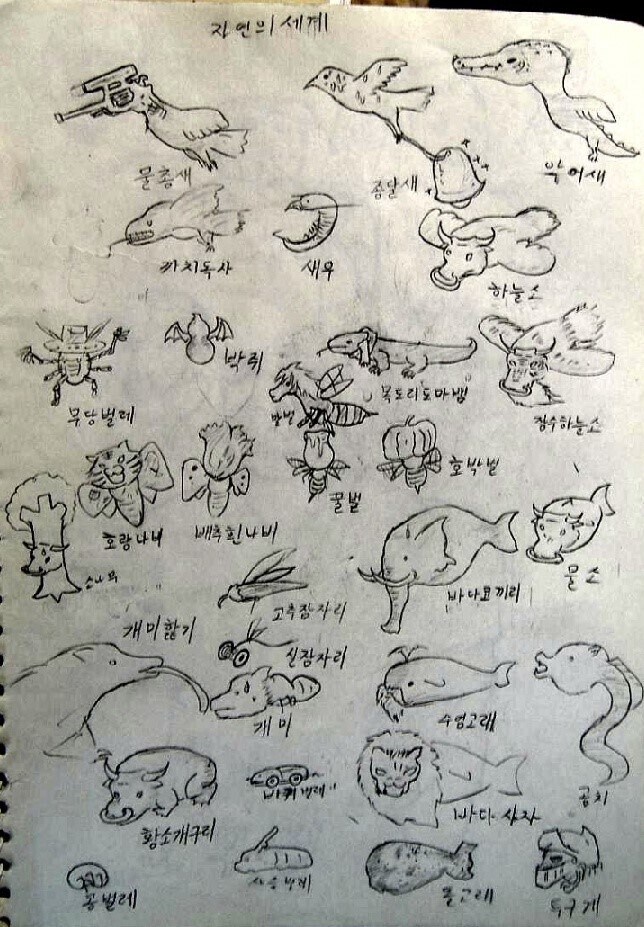 자연의 세계
물총새
종달새
악어새
까치독사
새우
하늘소
무당벌레
박쥐
목도리도마뱀
장수하늘소
말벌
호랑나비
배추흰나비
꿀벌
호박벌
소나무
고추잠자리
바다코끼리
물소
개미핥기
실잠자리
개미
수염고래
꽁치
황소개구리
바퀴벌레
바다사자
콩벌레
사슴벌레
돌고래
투구게